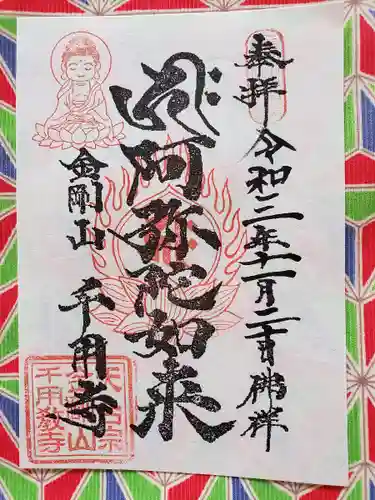 奉拝 令和三年十一月二十日 佛祥
阿弥陀如来
金剛山 千用寺
天台宗
金剛山
千用教寺